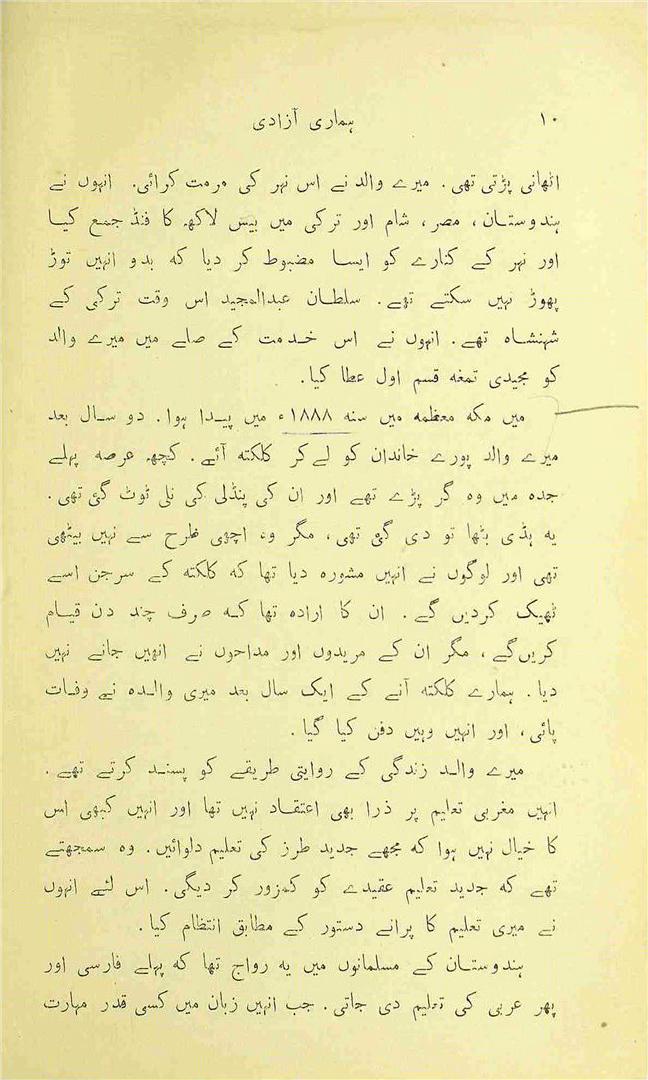 ۱۰ ہماری آزادی
اٹھانی پڑتی تھی. میرے والد نے اس نہر کی مرمت کرائی. انہوں نے
ہندوستان، مصر، شام اور ترکی میں بیس لاکھ کا فنڈ جمع کیا
اور نہر کے کنارے کو ایسا مضبوط کر دیا کہ بدو انہیں توڑ
پھوڑ نہیں سکتے تھے. سلطان عبدالمجید اس وقت ترکی کے
شہنشاہ تھے. انہوں نے اس خدمت کے صلے میں میرے والد
کو مجیدی تمغہ قسم اول عطا کیا.
میں مکہ معظمہ میں سنہ ۱۸۸۸ء میں پیدا ہوا. دو سال بعد
میرے والد پورے خاندان کو لےکر کلکتہ آئے. کچھ عرصہ پہلے
جدہ میں وہ گر پڑے تھے اور ان کی پنڈلی کی نلی ٹوٹ گئی تھی.
یہ ہڈی بٹھا تو دی گئی تھی، مگر وہ اچھی طرح سے نہیں بیٹھی
تھی اور لوگوں نے انہیں مشورہ دیا تھا کہ کلکتہ کے سرجن اسے
ٹھیک کردیں گے. ان کا ارادہ تھا کہ صرف چند دن قیام
کریں گے، مگر ان کے مریدوں اور مداحوں نے انھیں جانے نہیں
دیا. ہمارے کلکتہ آنے کے ایک سال بعد میری والدہ نے وفات
پائی، اور انہیں وہیں دفن کیا گیا.
میرے والد زندگی کے روایتی طریقے کو پسند کرتے تھے.
انہیں مغربی تعلیم پر ذرا بھی اعتقاد نہیں تھا اور انہیں کبھی اس
کا خیال نہیں ہوا کہ مجھے جدید طرز کی تعلیم دلوائیں. وہ سمجھتے
تھے کہ جدید تعلیم عقیدے کو کمزور کر دیگی. اس لئے انہوں
نے میری تعلیم کا پرانے دستور کے مطابق انتظام کیا.
ہندوستان کے مسلمانوں میں یہ رواج تھا کہ پہلے فارسی اور
پھر عربی کی تعلیم دی جاتی. جب انہیں زبان میں کسی قدر مہارت